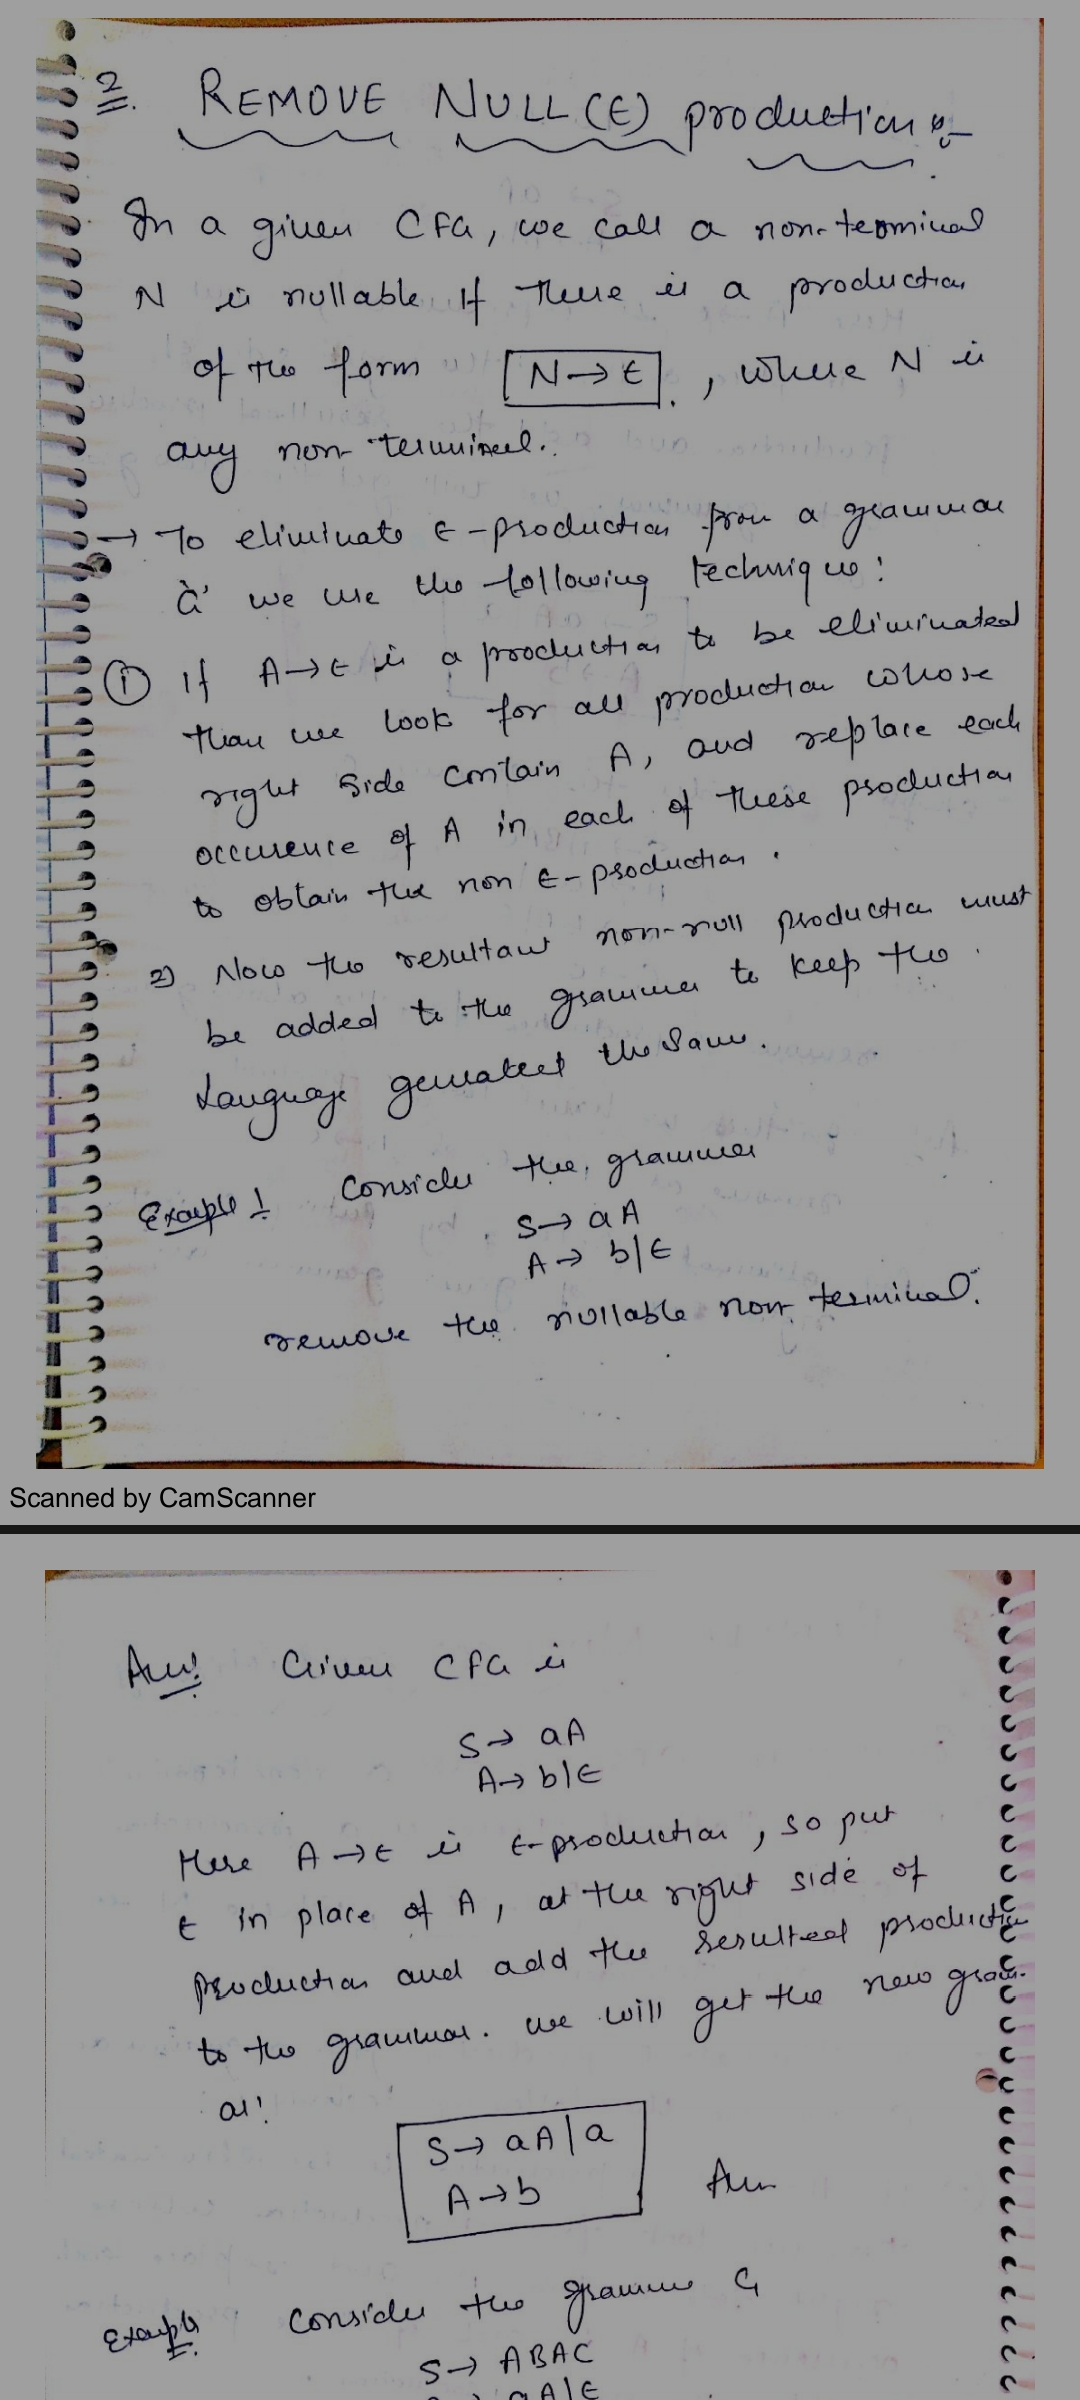 2. REMOVE NULL(ϵ) production :-
In a given CFG, we call a non-terminal
N is nullable if there is a production
of the form N → ϵ , where N is
any non-terminal.
→ To eliminate ϵ-production from a grammar
'G' we use the following technique:
① If A → ϵ is a production to be eliminated
than we look for all production whose
right side contain A, and replace each
occurence of A in each of these production
to obtain the non ϵ-production.
2) Now the resultant non-null production must
be added to the grammar to keep the
Language generated the same.
Example! Consider the grammer
S → aA
A → b|ϵ
remove the nullable non terminal.
Scanned by CamScanner
Ans! Given CFG is
S → aA
A → b|ϵ
Here A → ϵ is ϵ-production, so put
ϵ in place of A, at the right side of
production and add the resulted production
to the grammar. we will get the new gram.
as!
S → aA|a
A → b Ans
Example Consider the gramme G
S → ABAC
aA|ϵ